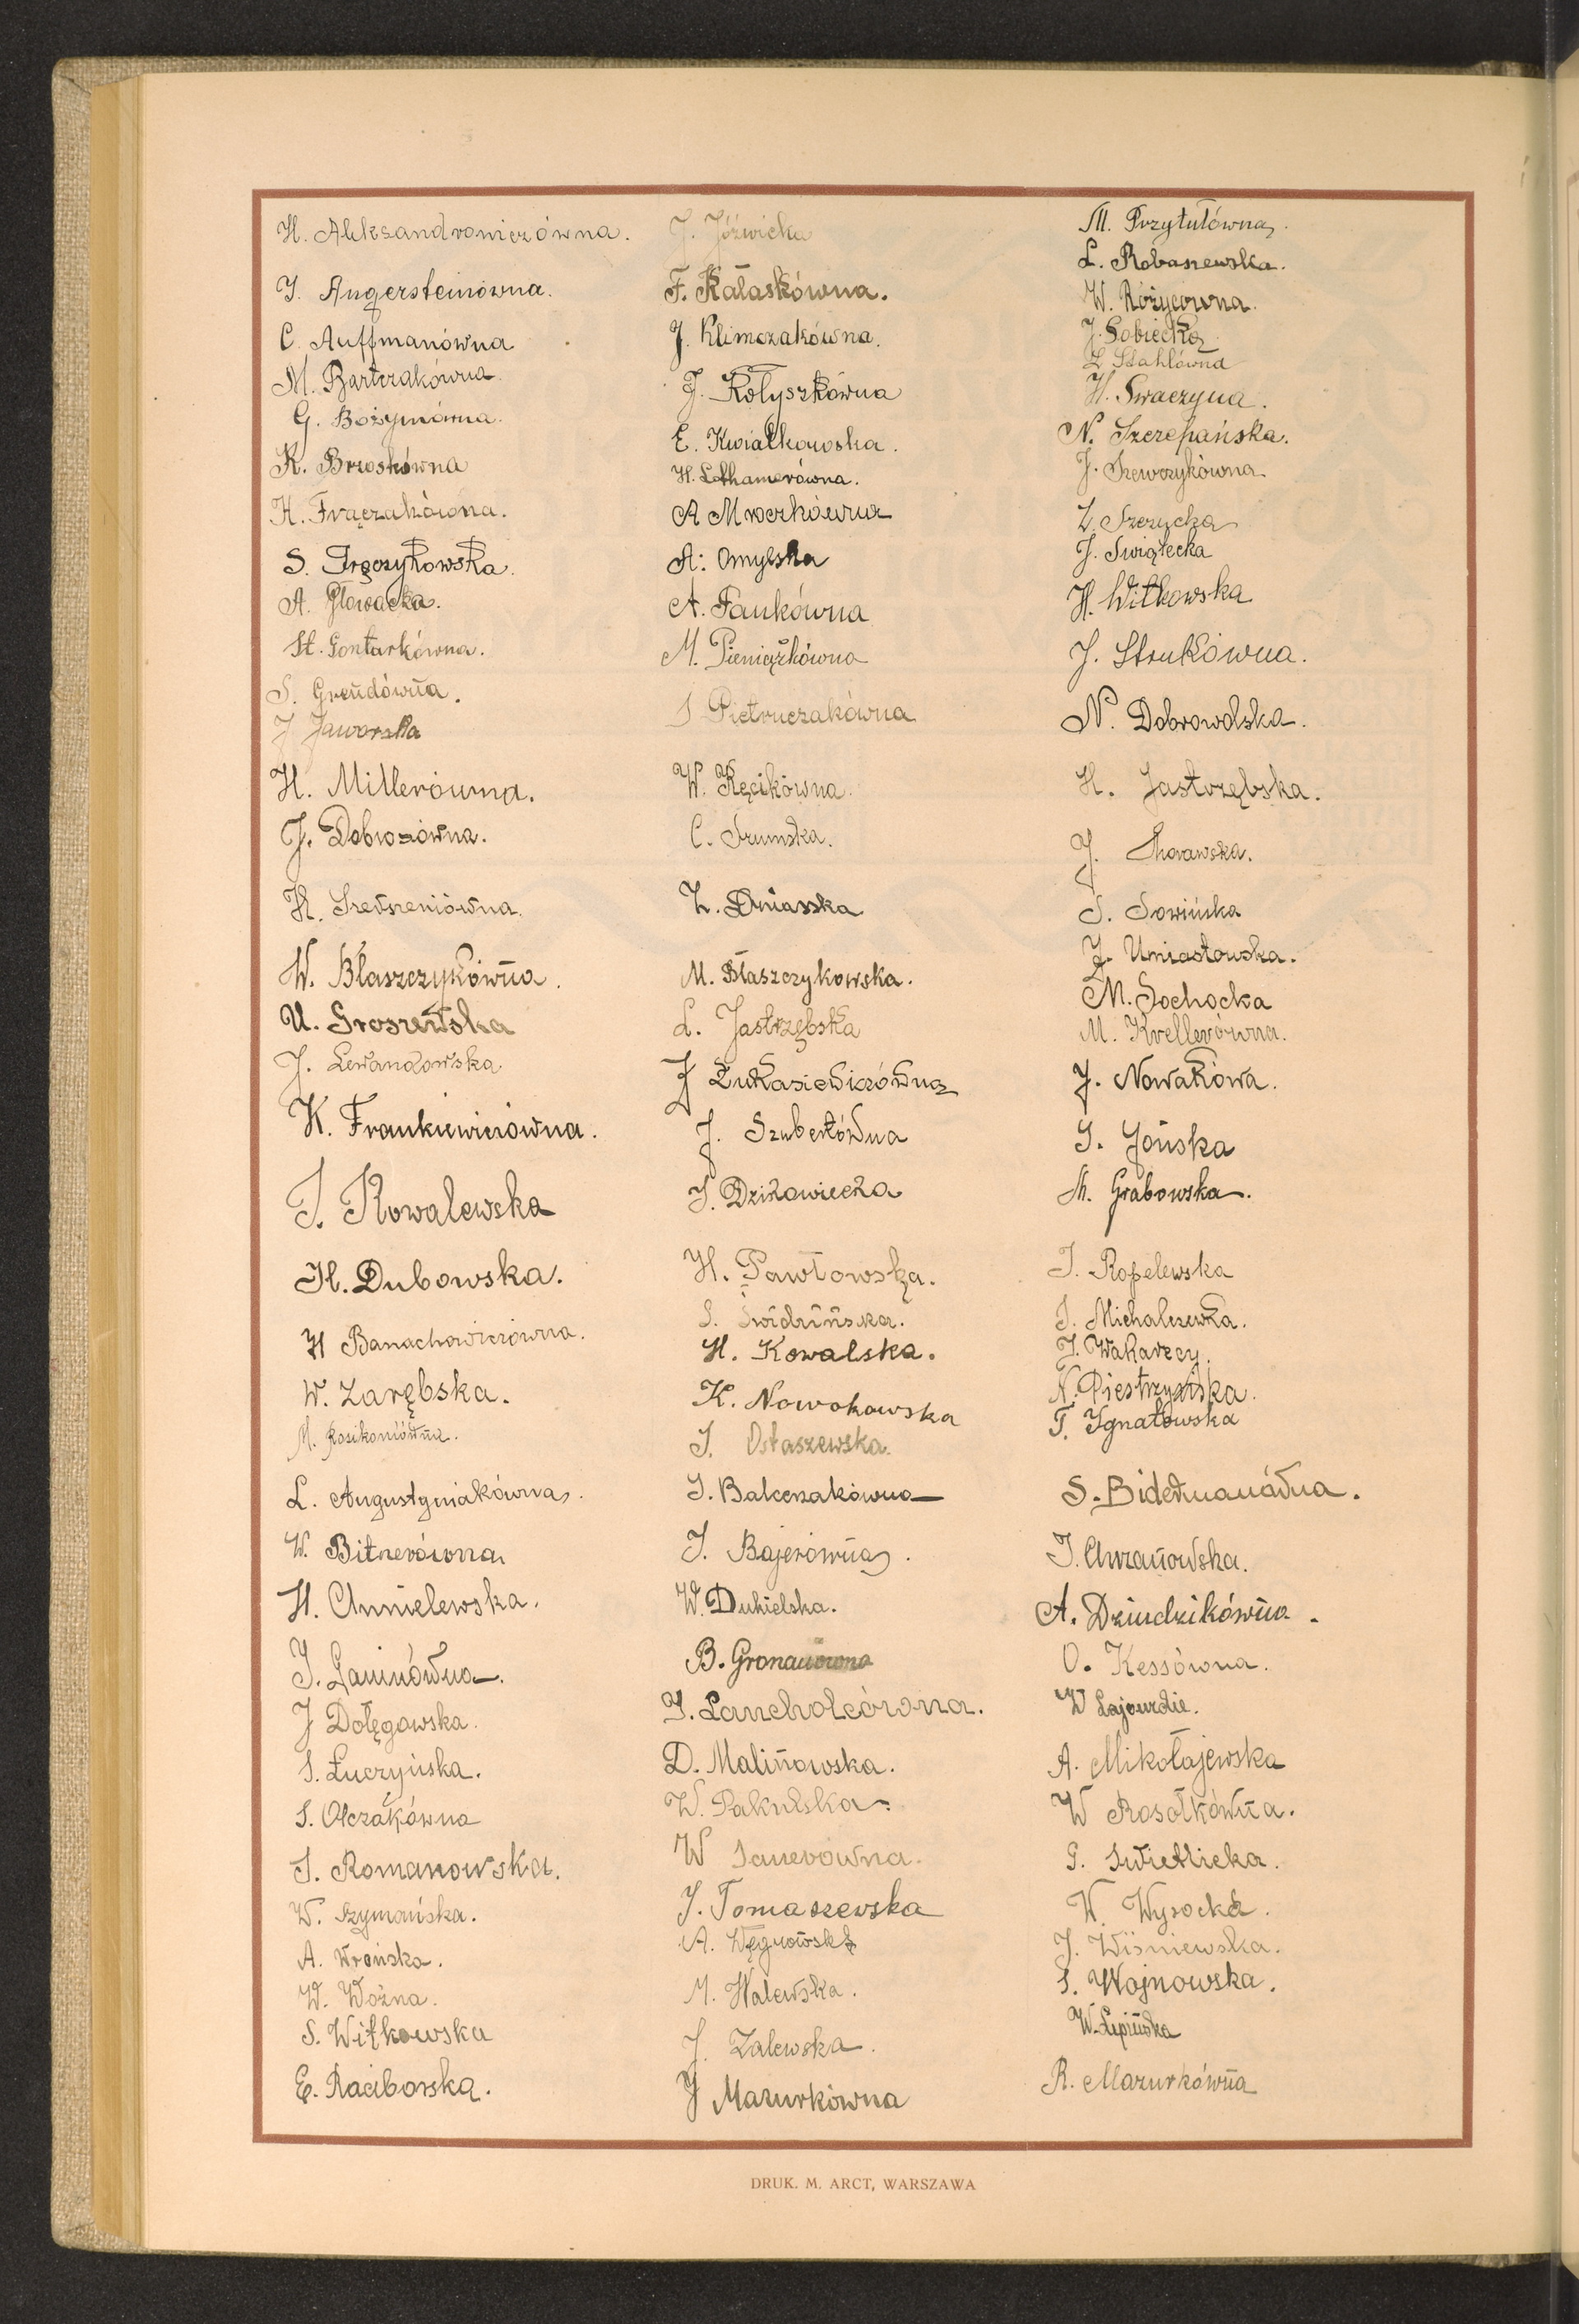 H. Aleksandrowiczówna.
J. Angersteinówna.
C. Auffmanówna
M. Bartczakówna.
G. Bożymówna.
K. Brzoskówna
H. Frączakówna.
S. Fręczykowska.
A. Głowacka.
St. Gontarkówna.
S. Grendówna.
J. Jaworska
H. Millerówna.
J. Dobroszówna.
H.
W. Błaszczykówna.
U. Groszewska
J. Lewandowska
K. Frankiewiczówna.
J. Kowalewska
H. Dubowska.
H Banachowiczówna.
W. Zarębska.
M. Kosikoniówna.
L. Augustyniakówna.
W. Bitnerówna.
H. Chmielewska.
J. Janinówna.
J Dołęgowska.
S. Łuczyńska.
S. Olczakówna
S. Romanowska.
W. Szymańska.
A. Wrońska.
W. Woźna.
S. Witkowska
E. Raciborska.
J. Jóźwicka
F. Kałaskówna.
J. Klimczakówna.
J. Kołyszkówna
E. Kwiatkowska.
H. Lothamerówna.
A Mroczkówna
A. Omylska
A. Pankówna
M. Pieniążkówna
S Pietruczakówna
W. Kęcikówna.
C. Szumska.
Z.
M. Błaszczykowska.
L. Jastrzębska
J Łukasiewiczówna
J. Szubertówna
J. Dzikowiecka
H. Pawłowska.
S. Świdzińska.
H. Kowalska.
K. Nowokowska
J. Ostaszewska.
J. Balcerzakówna
J. Bajerówna.
W. Dukielska.
B. Gronauówna
J. Lancholcówna.
D. Malinowska.
W. Pakulska.
W Sauerówna.
J. Tomaszewska
A. Węgrowska
M. Walewska.
J. Zalewska.
J Mazurkówna
M. Przytułówna.
L. Robaszewska.
W. Różycówna.
J. Sobiecka
Z Stahlówna
H. Swaczyna.
N. Szczepańska.
J. Szewczykówna
Z. Szczycka
J. Świątecka
H. Witkowska
J. Strukówna.
N. Dobrowolska.
H. Jastrzębska.
J.
S. Sowińska
J. Umiastowska.
M. Sochocka
M. Krellerówna.
J. Nowakowa.
J. Jońska
M. Grabowska.
J. Ropelewska
J. Michalczewska.
J. Wakarecy.
N. Piestrzyńska.
T. Ignatowska
S. Bidermanówna.
J. Chrzanowska.
A. Dziudzikówna.
O. Kessówna.
W Lajourdie.
A. Mikołajewska
W Rosołkówna.
G. Świetlicka.
W. Wysocka.
J. Wiśniewska.
S. Wojnowska.
W. Lipińska
R. Mazurkówna
DRUK. M. ARCT, WARSZAWA